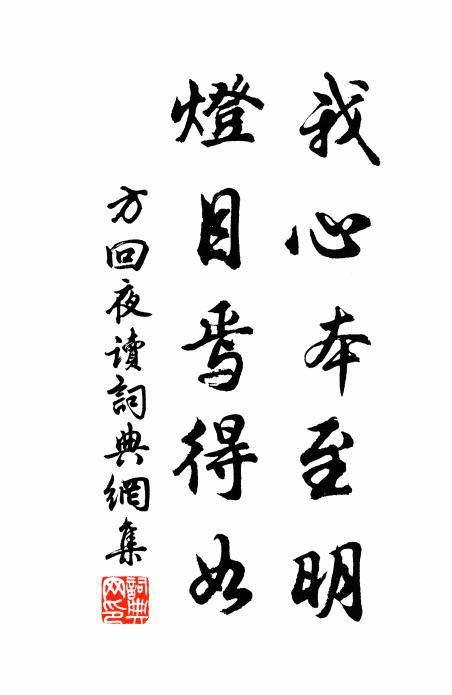 我心本至明
燈目焉得如
方回夜讀詞典網集
詞典網印